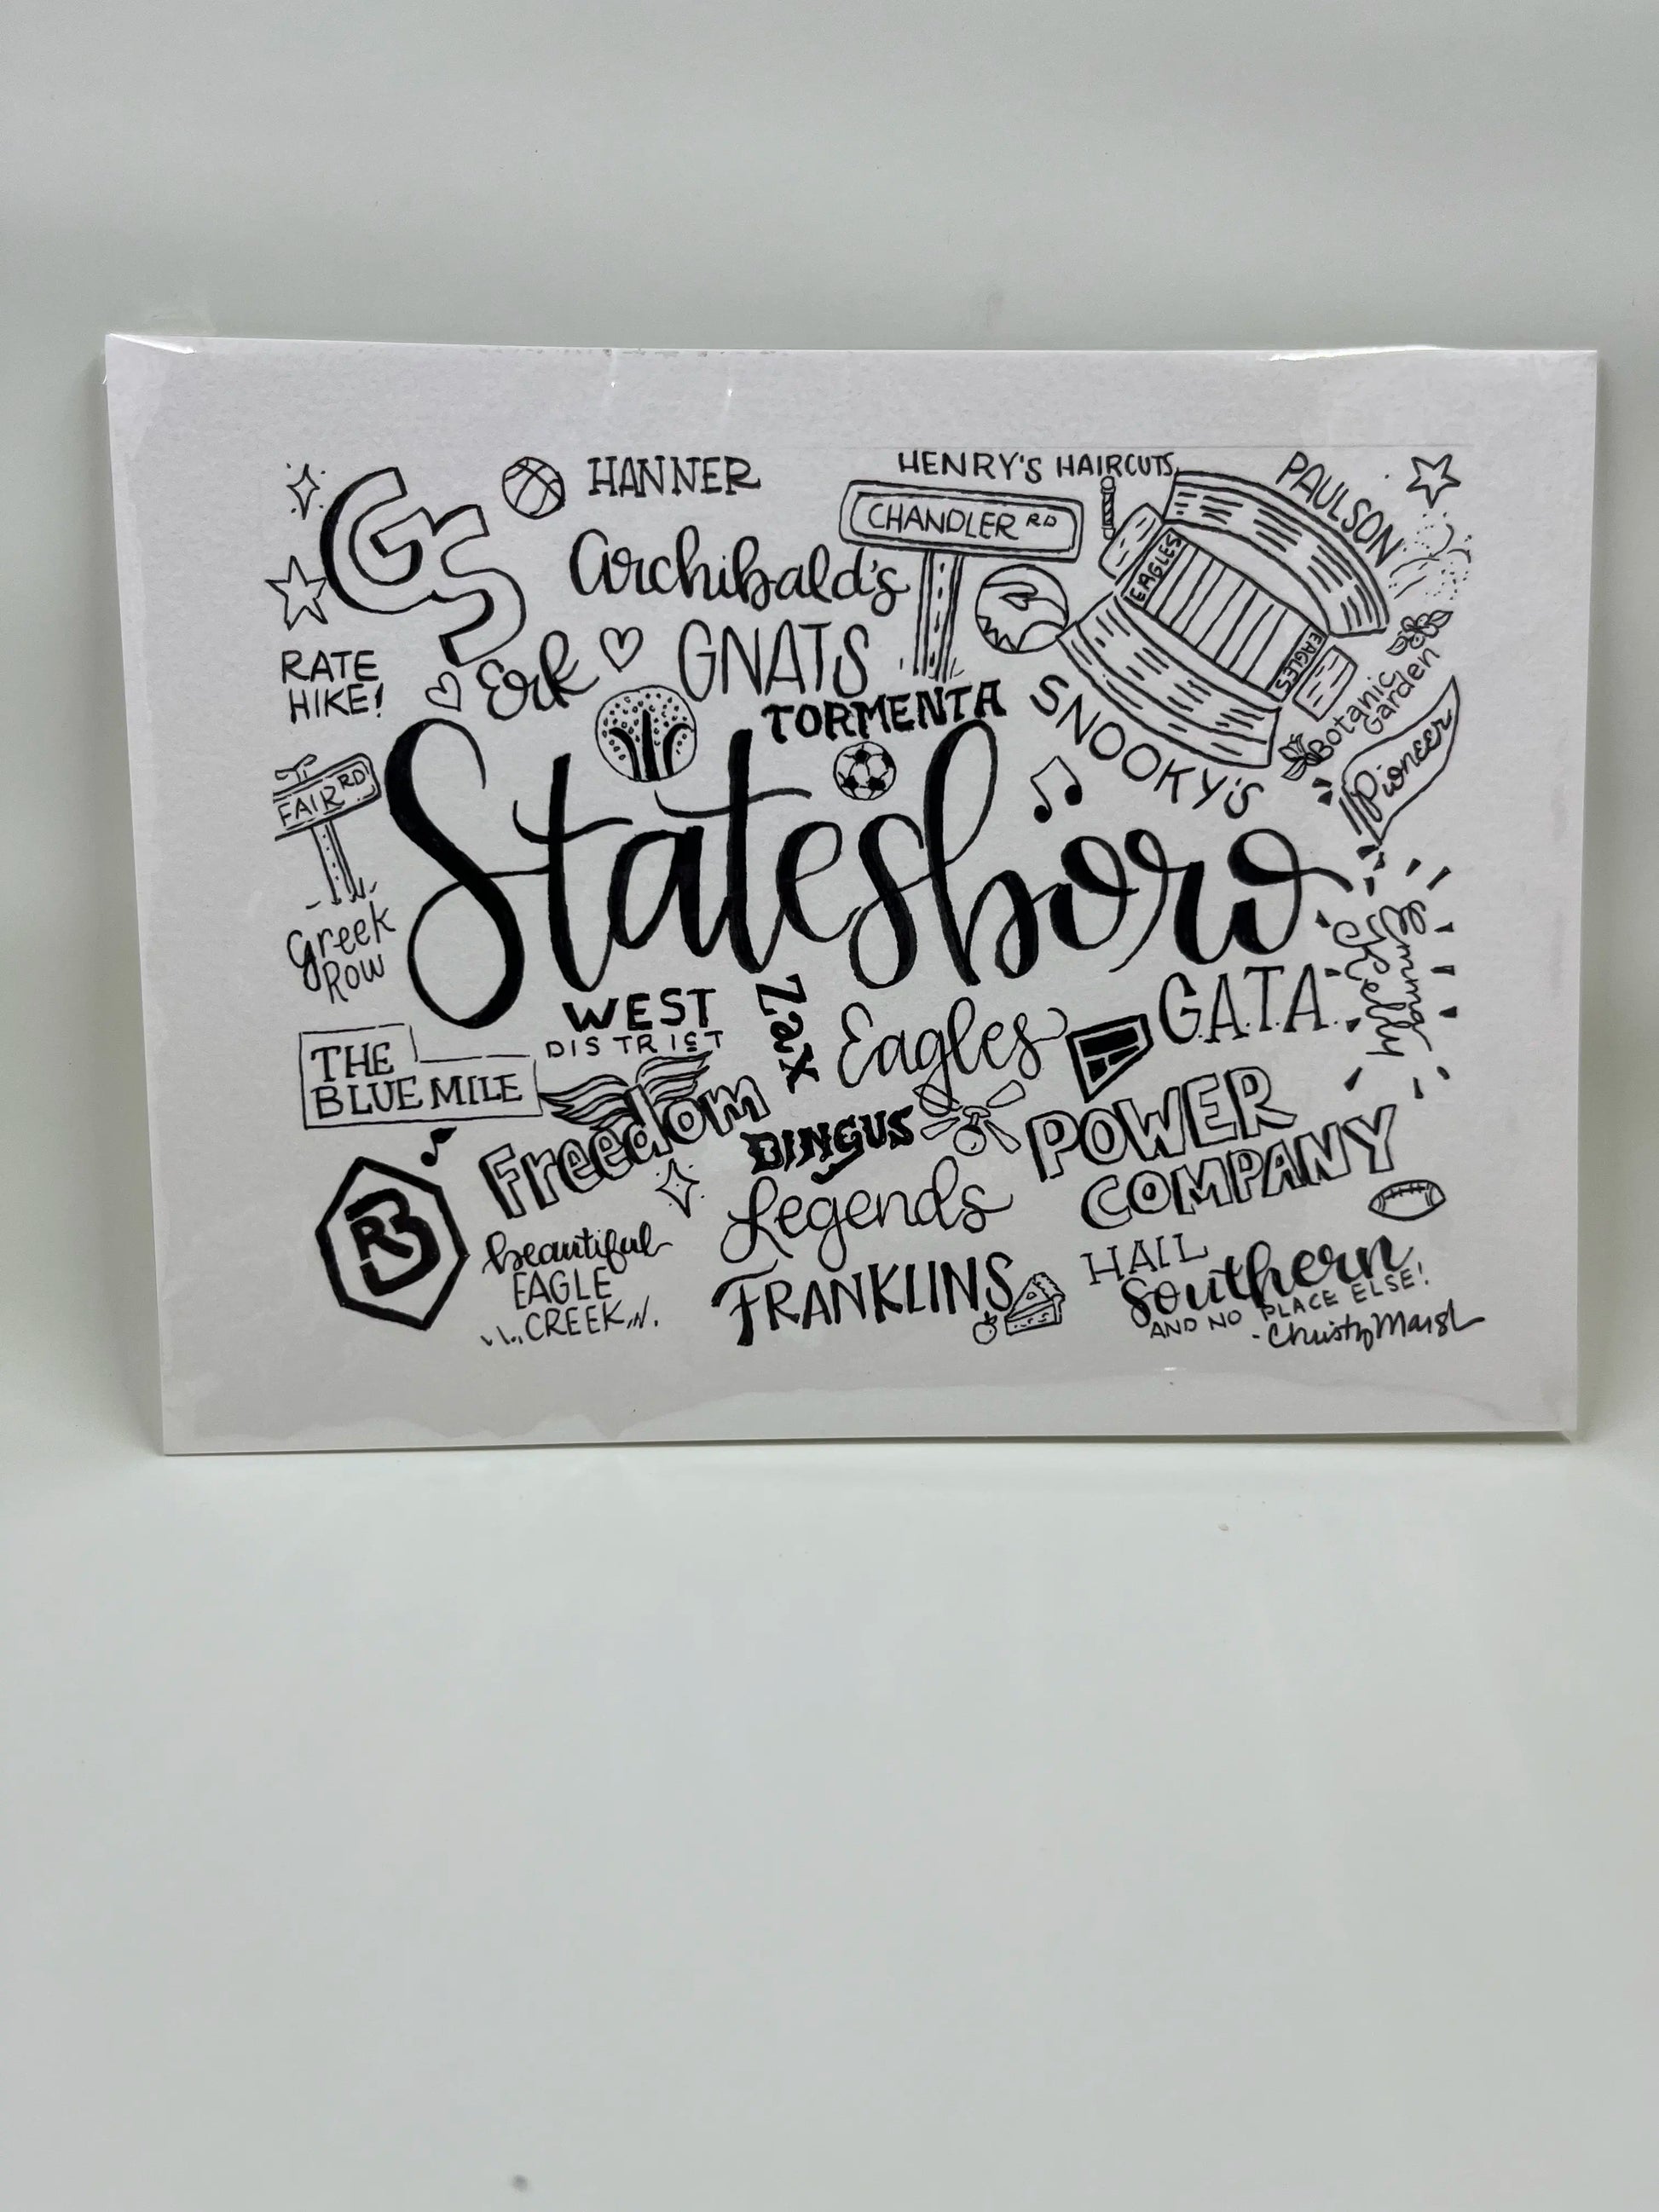 GS
HANNER
HENRY'S HAIRCUTS
PAULSON
CHANDLER RD
Archibald's
EAGLES
EAGLES
RATE
HIKE!
Erk
GNATS
TORMENTA
SNOOKY'S
Botanic
Garden
Pioneer
FAIR RD
Statesboro
Greek
Row
WEST
DISTRICT
Zax
Eagles
G.A.T.A.
Emma
Kelly
THE
BLUE MILE
Freedom
DINGUS
POWER
COMPANY
RB
Legends
beautiful
EAGLE
CREEK
FRANKLINS
HAIL
Southern
AND NO PLACE ELSE!
-Christy Marsh